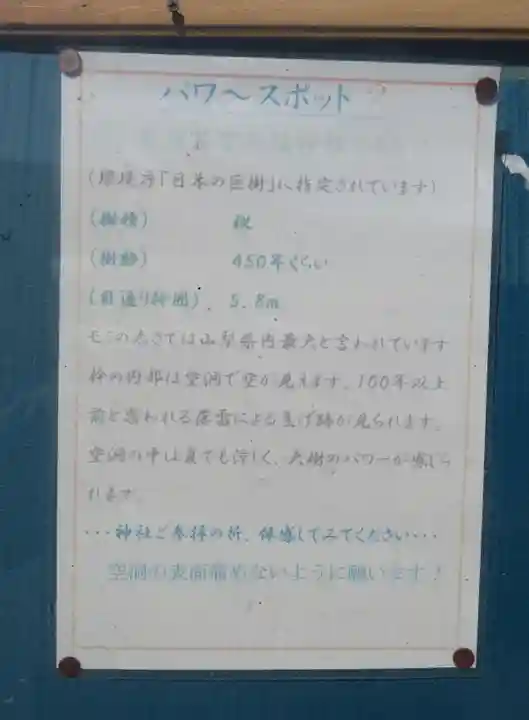 パワ～スポット
(環境庁「日本の巨樹」に指定されています)
(樹種) 樅
(樹齢) 450年ぐらい
(目通り幹囲) 5.8m
モミの大きさでは山梨県内最大と言われています
幹の内部は空洞で空が見えます、100年以上
前と思われる落雷による焦げ跡が見られます。
空洞の中は夏でも涼しく、大樹のパワーが感じら
れます。
・・・神社ご参拝の折、体感してみてください・・・
空洞の表面痛めないように願います！